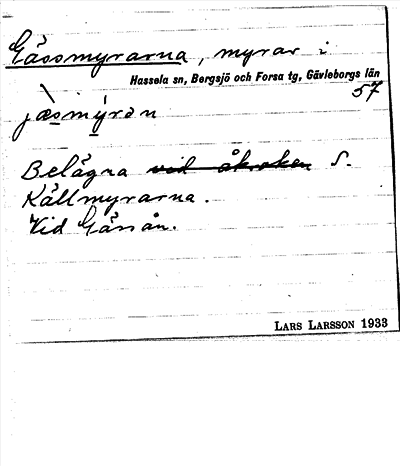 Gässmyrarna, myrar i
Hassela sn, Bergsjö och Forsa tg, Gävleborgs län
57
jæsmýran
Belägna vid åkroken S.
Källmyrarna.
Vid Gässån.
LARS LARSSON 1933